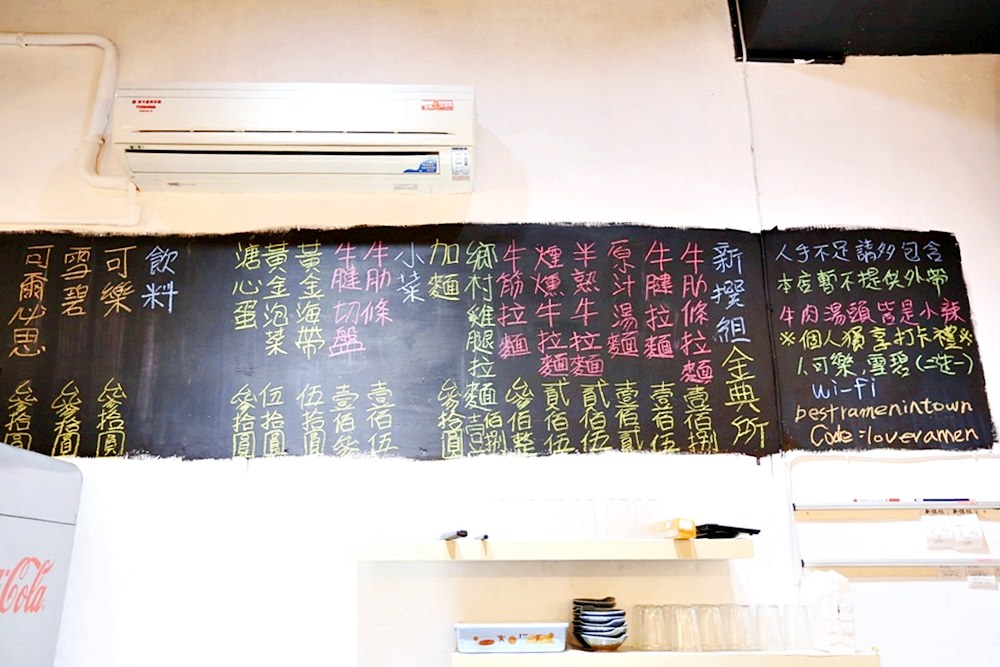 新撰組金典所
牛肋條拉麵 壹佰捌
牛腱拉麵 壹佰伍
原汁湯麵 壹佰貳
半熟牛拉麵 貳佰伍
煙燻牛拉麵 貳佰伍
牛筋拉麵 參佰整
鄉村雞腿拉麵 壹佰捌
加麵 參拾圓
小菜
牛肋條 壹佰伍
牛腱切盤 壹佰參
黃金海帶 伍拾圓
黃金泡菜 伍拾圓
溏心蛋 參拾圓
飲料
可樂 參拾圓
雪碧 參拾圓
可爾必思 參拾圓
人手不足請多包含
本店暫不提供外帶
牛肉湯頭皆是小辣
※個人獨享打卡禮※
1.可樂,雪碧(二選一)
Wi-Fi
bestramenintown
Code:loveramen
Coca-Cola